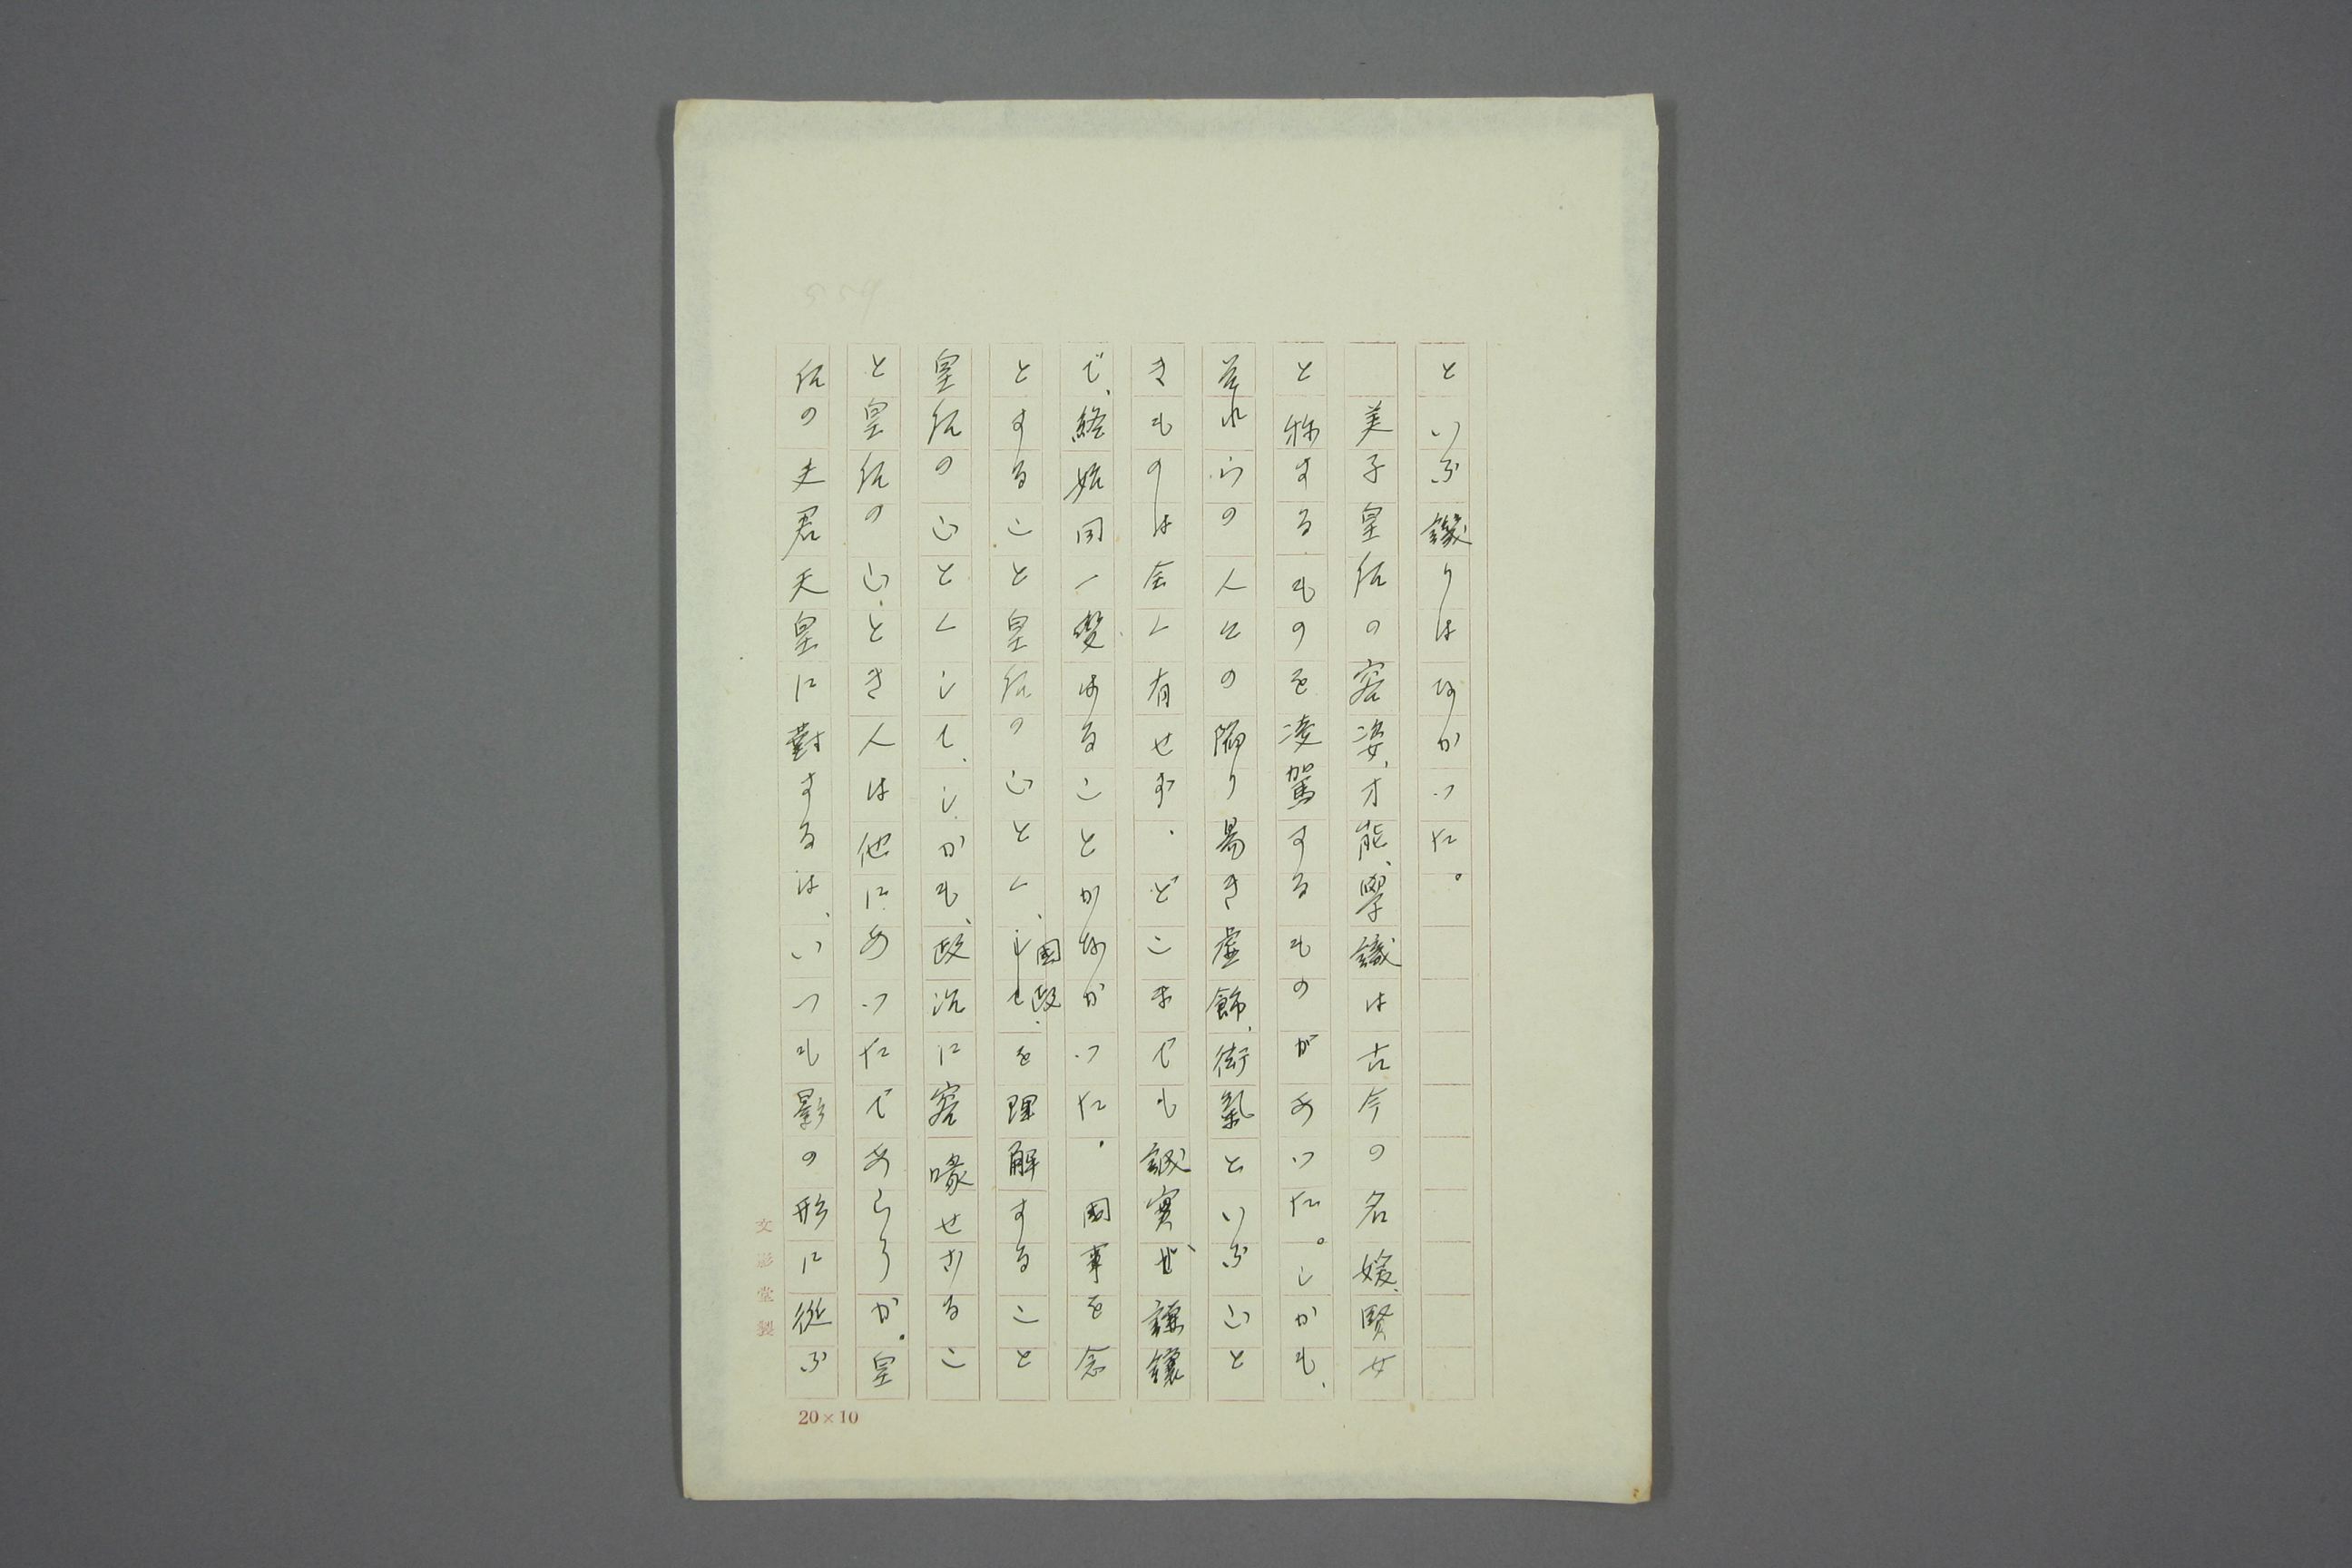 といふ譏りはなかつた。
美子皇后の容姿、才能、學識は古今の名媛、賢女
と称するものを凌駕するものがあつた。しかも、
若れらの人々の陥り易き虚飾、衒氣といふ心と
きものは全く有せず、どこまでも誠実、謙譲
で、終始同一變はることがなかつた。國事を念
とすること皇后の心とく、國政を理解すること
皇后の心とくして、しかも、政治に容喙せざるこ
と皇后の心とき人は他にあつたであらうか。皇
后の夫君天皇に對するは、いつも影の形に從ふ
文影堂製
20×10